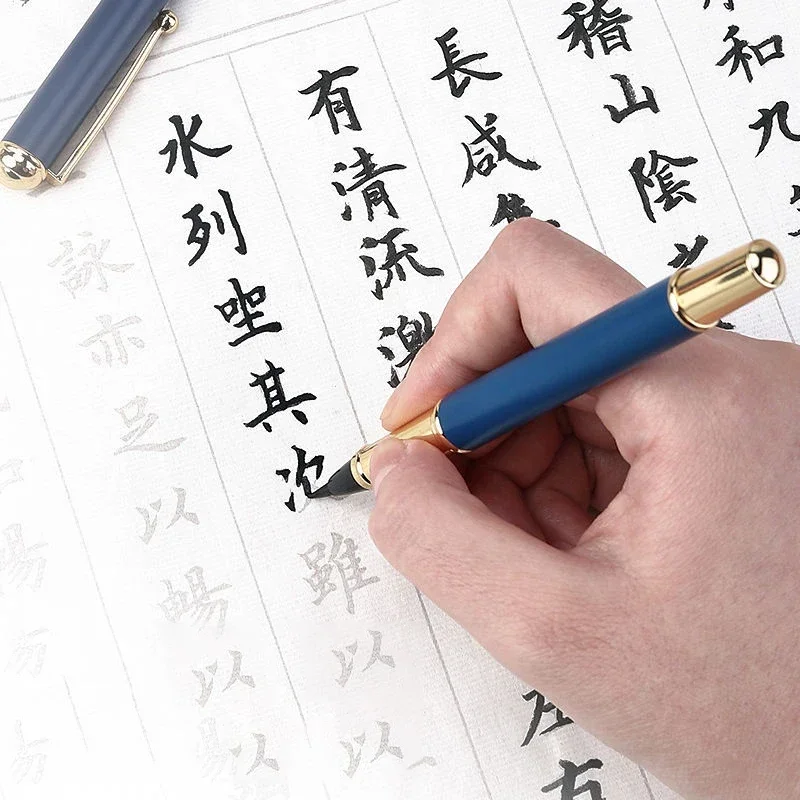 和九
稽山陰之
長咸集
有清流激左右
水列坐其次雖以以
詠亦足以暢以